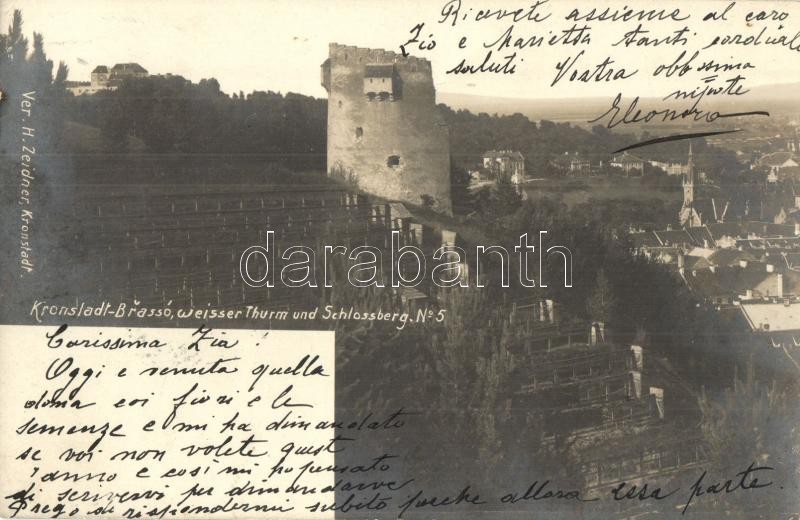 Ricevete assieme al caro
Zio e Marietta tanti cordiali
saluti Vostra obbssima
nipote
Eleonora
Ver. H. Zeidner, Kronstadt.
darabanth.com
Kronstadt-Brassó, weisser Thurm und Schlossberg. No 5
Carissima Zia!
Oggi e venuta quella
donna coi fiori e le
semenze e mi ha dimandato
se voi non volete quest
'anno e così mi ho pensato
di scrivervi per dimandarve
Prego di rispondermi subito perche allora essa parte.